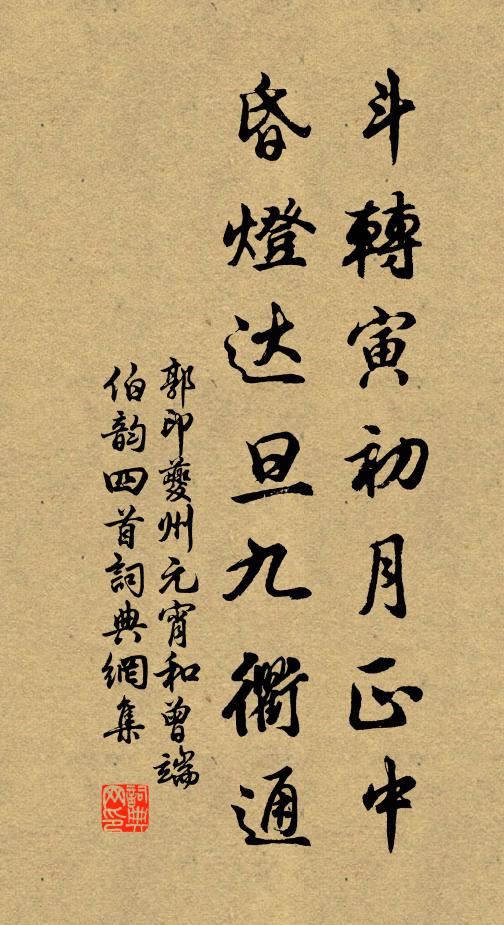 斗轉寅初月正中
昏燈达旦九衢通
郭印夔州元宵和曾端
伯韵四首詞典網集
詞典网印